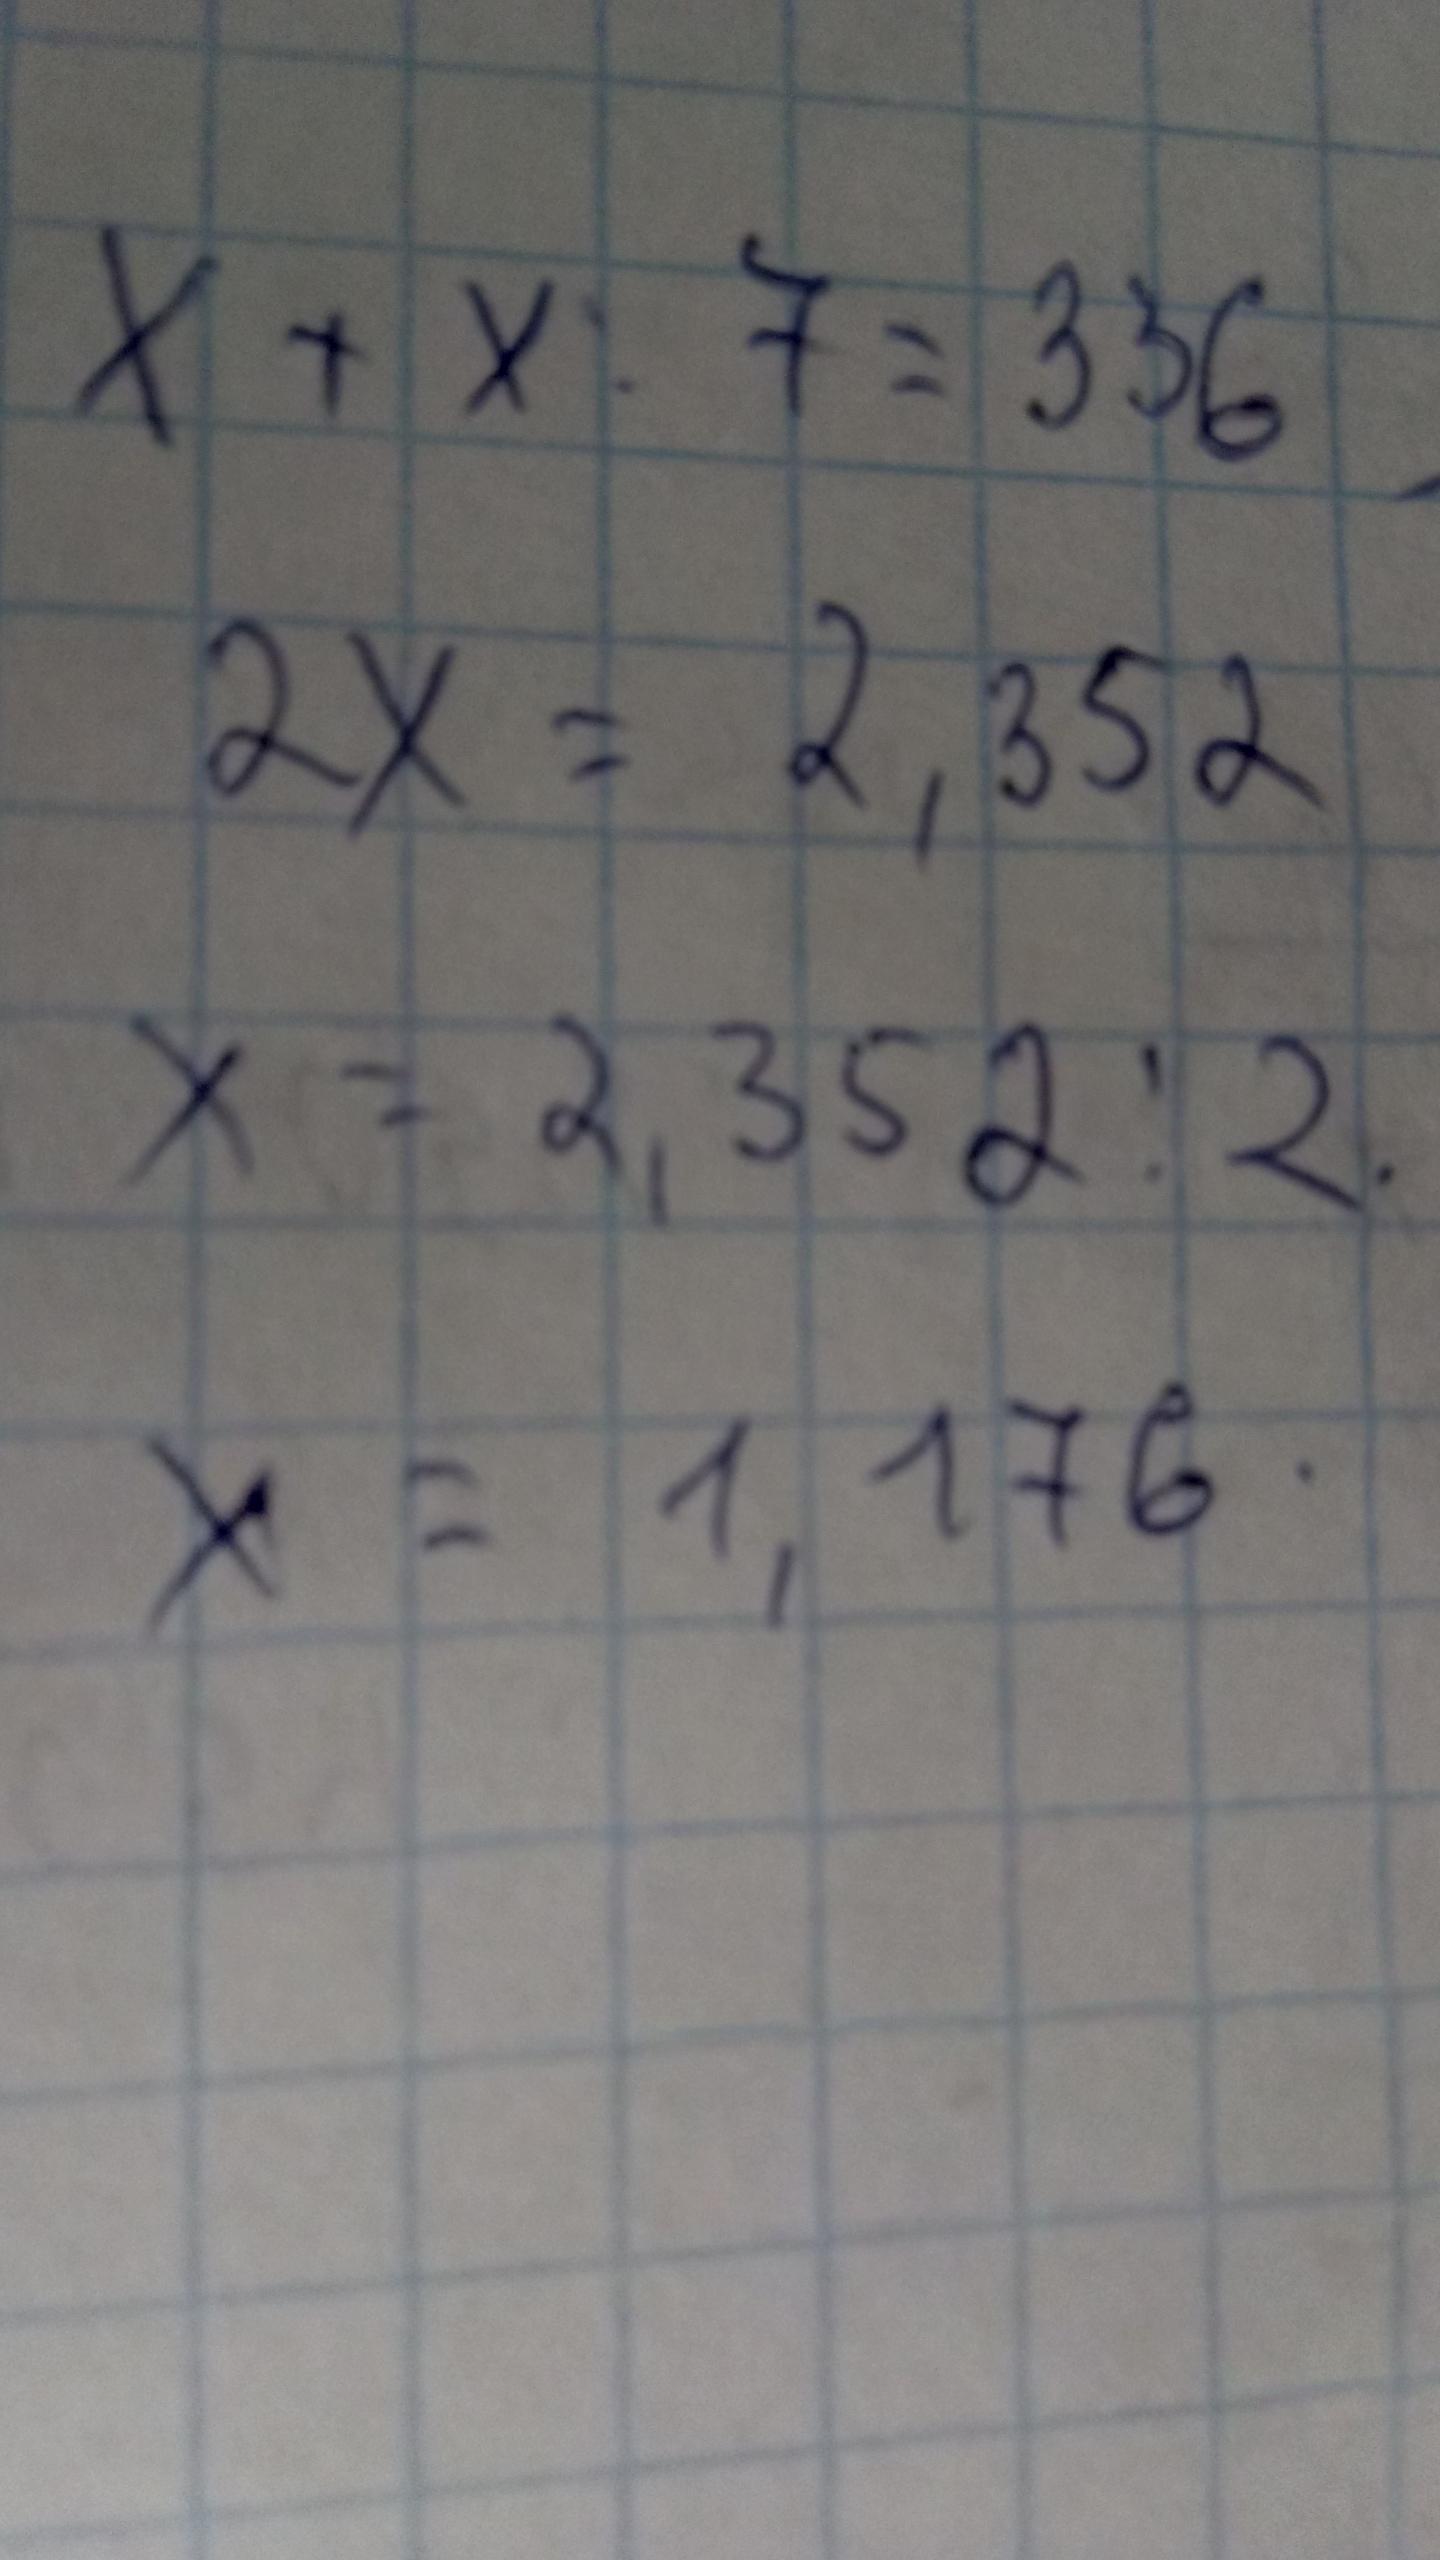 x + x : 7 = 336
2x = 2,352
x = 2,352 : 2.
x = 1,176.